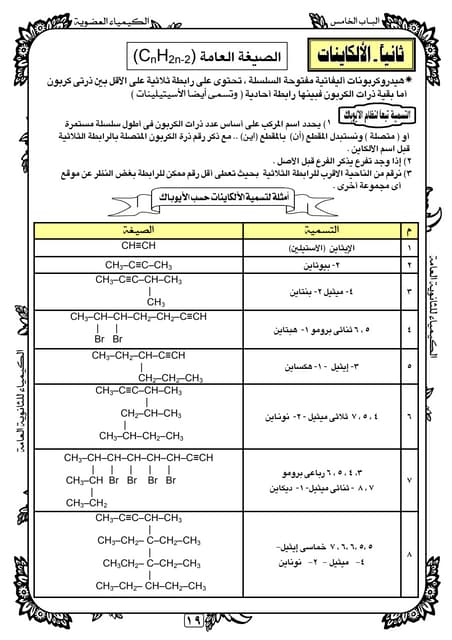 الباب الخامس
الكيمياء العضوية
ثانياً - الألكاينات
الصيغة العامة (CnH2n-2)
* هيدروكربونات اليفاتية مفتوحة السلسلة ، تحتوى على رابطة ثلاثية على الأقل بين ذرتى كربون
أما بقية ذرات الكربون فبينها رابطة احادية ( وتسمى أيضا الأسيتيلينات )
التسمية تبعاً لنظام الأيوباك
١) يحدد اسم المركب على اساس عدد ذرات الكربون فى اطول سلسلة مستمرة
أو ( متصلة ) ونستبدل المقطع (أن) بالمقطع (أين) .. مع ذكر رقم ذرة الكربون المتصلة بالرابطة الثلاثية
قبل اسم الألكاين .
٢) إذا وجد تفرع يذكر الفرع قبل الاصل .
٣) نرقم من الناحية الاقرب للرابطة الثلاثية بحيث تعطى أقل رقم ممكن للرابطة بغض النظر عن موقع
أى مجموعة اخرى .
أمثلة لتسمية الألكاينات حسب الأيوباك
م التسمية الصيغة
١ الإيثاين (الأستيلين) CH≡CH
٢ ٢- بيوتاين CH3–C≡C–CH3
٣ ٤- ميثيل ٢- بنتاين CH3–C≡C–CH–CH3
CH3
٤ ٥ ، ٦ ثنائى برومو ١- هبتاين CH3–CH–CH–CH2–CH2–C≡CH
Br Br
٥ ٣- إيثيل - ١- هكساين CH3–CH2–CH–C≡CH
CH2–CH2–CH3
٦ ٤ ، ٥ ، ٧ ثلاثى ميثيل - ٢- نوناين CH3–C≡C–CH–CH3
CH2–CH–CH3
CH3–CH–CH2–CH3
٧ ٣، ٤ ، ٥ ، ٦ رباعى برومو CH3–CH–CH–CH–CH–CH–C≡CH
٧ ، ٨ - ثنائى ميثيل-١- ديكاين CH3–CH Br Br Br Br
CH3–CH2
٨ ٥، ٥ ، ٦ ، ٦ ، ٧ خماسى إيثيل- CH3–C≡C–CH–CH3
٤- ميثيل - ٢ - نوناين CH3–CH2– C–CH2–CH3
CH3CH2– C–CH2–CH3
CH3–CH2– CH–CH2–CH3
الكيمياء للثانوية العامة
الكيمياء للثانوية العامة
١٩